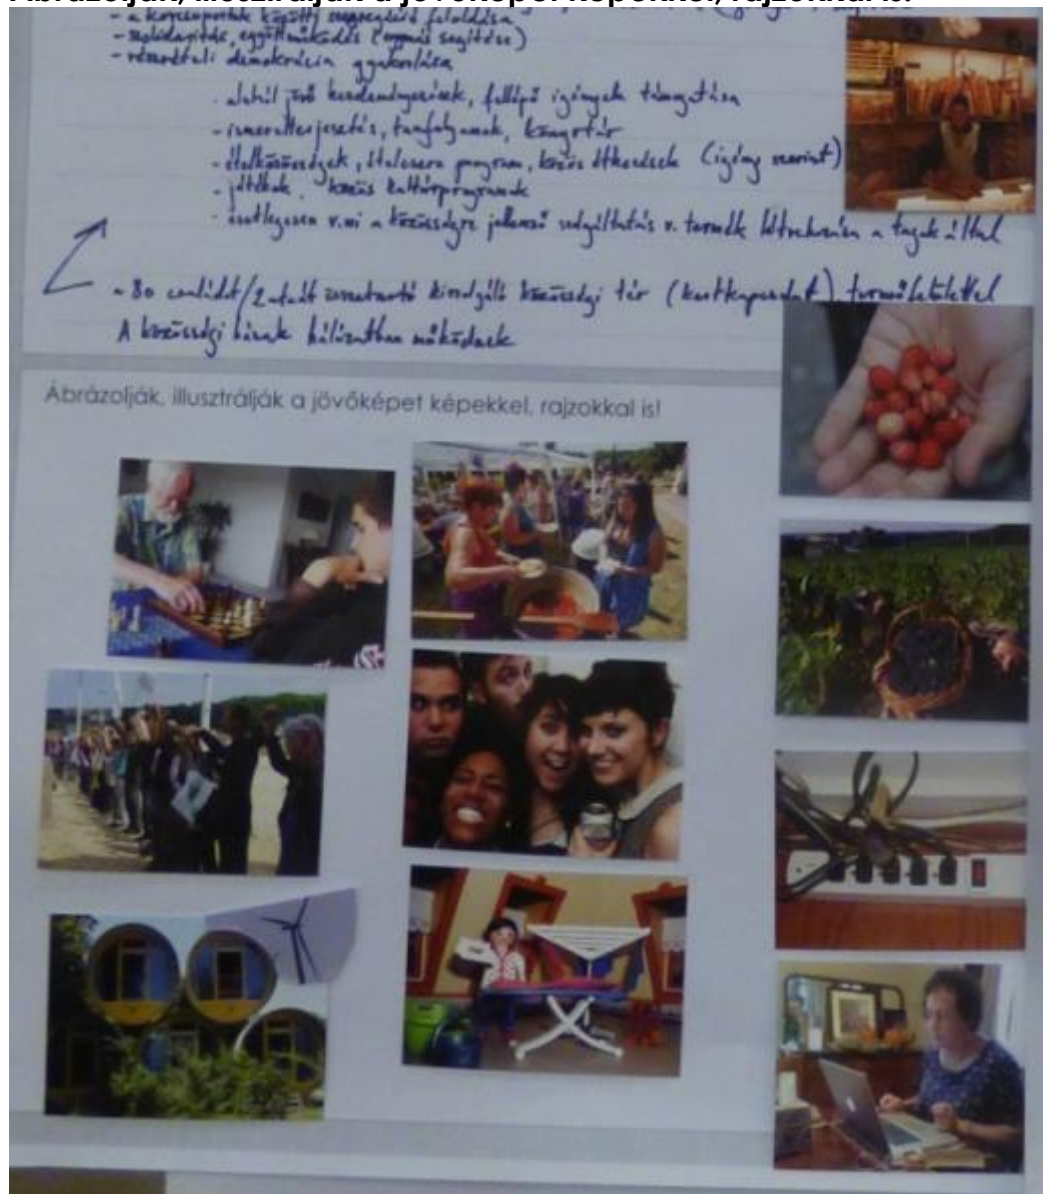 Ábrázolják, illusztrálják a jövőképet képekkel, rajzokkal is!
- a korcsoportok közötti szegregáció feloldása
- szolidaritás, együttműködés (egymás segítése)
- részvételi demokrácia gyakorlása
- alulról jövő kezdeményezések, fellépő igények támogatása
- ismeretterjesztés, tanfolyamok, könyvtár
- ételközösségek, ételcsere program, közös étkezések (igény szerint)
- játékok, közös kultúrprogramok
- esetlegesen v.mi a közösségre jellemző szolgáltatás v. termék létrehozása a tagok által
- 80 családot/2 utcát összetartó kiszolgáló közösségi tér (kertkapcsolat) termőfelülettel
A közösségi házak hálózatban működnek
Ábrázolják, illusztrálják a jövőképet képekkel, rajzokkal is!